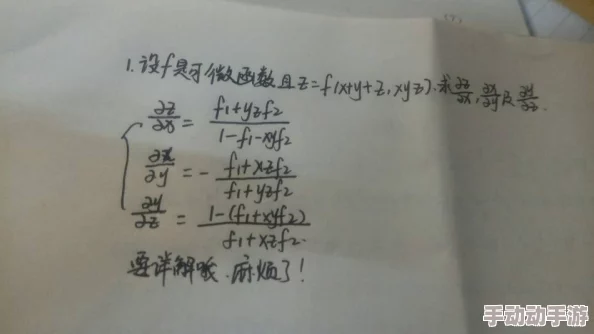 1.设f具可微函数且z=f(x+y+z,xyz).求∂z/∂x,∂x/∂y及∂y/∂z.
∂z/∂x = (f1+yzf2)/(1-f1-xyf2)
∂x/∂y = -(f1+xzf2)/(f1+yzf2)
∂y/∂z = (1-(f1+xyf2))/(f1+xzf2).
要详解哦.麻烦了!
手动动手游